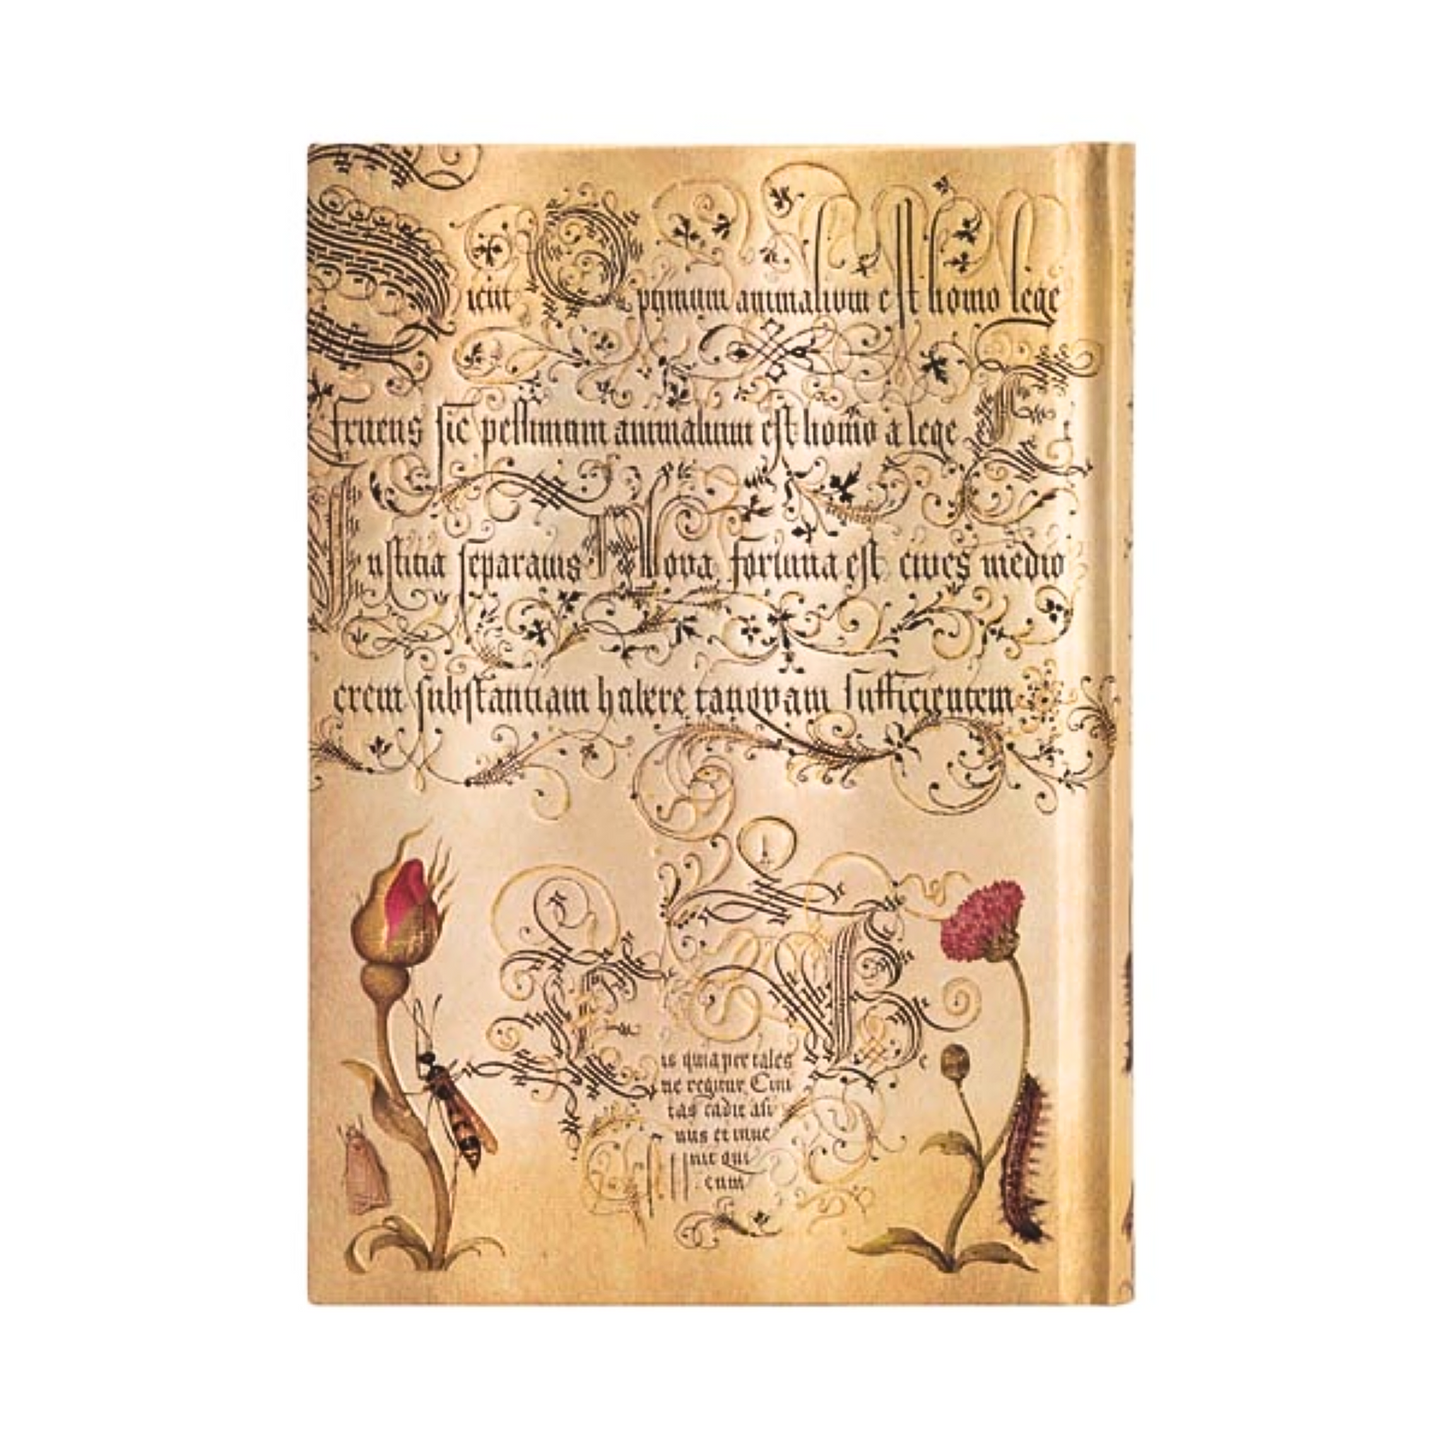 Sicut Optimum animalium est homo lege
fruens sic pessimum animalium est homo a lege Et
Iustitia separatus Nova fortuna est cives medio
crem substantiam habere tanqvam sufficientem
Eis quia per tales Be
ne regitur Civi
tas cadit asi
nus et inve
nit qui
eum